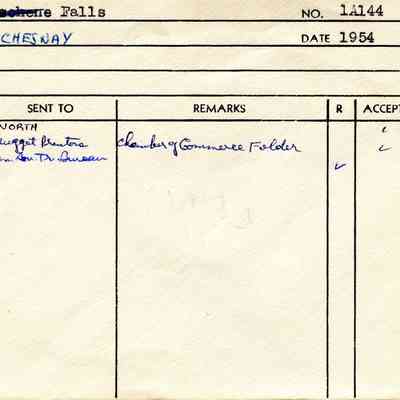 Falls NO. 1A144
CHESNAY DATE 1954
SENT TO REMARKS R ACCEPT
NORTH
Nugget Printers Chamber of Commerce Folder
Bureau